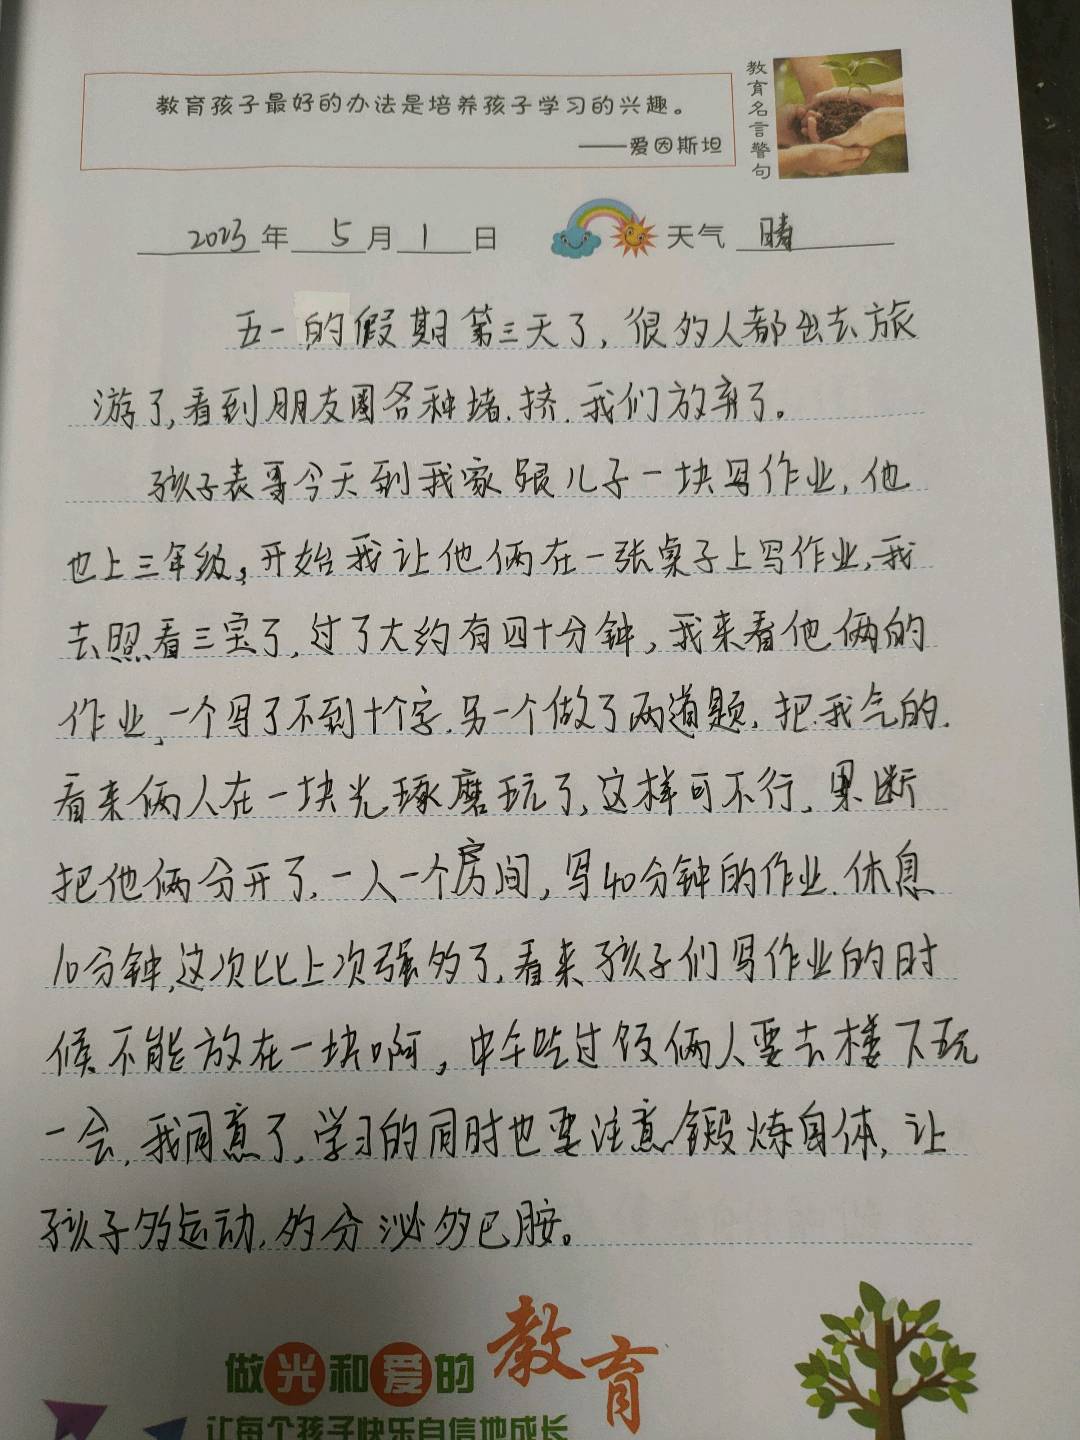 教育孩子最好的办法是培养孩子学习的兴趣。
——爱因斯坦
教育名言警句
2023年 5月 1日 天气 晴
五一的假期第三天了，很多人都出去旅
游了，看到朋友圈各种堵、挤、我们放弃了。
孩子表哥今天到我家跟儿子一块写作业，他
也上三年级，开始我让他俩在一张桌子上写作业，我
去照看三宝了，过了大约有四十分钟，我来看他俩的
作业，一个写了不到十个字，另一个做了两道题，把我气的，
看来俩人在一块光琢磨玩了，这样可不行，果断
把他俩分开了，一人一个房间，写40分钟的作业，休息
10分钟，这次比上次强多了，看来孩子们写作业的时
候不能放在一块啊，中午吃过饭俩人要去楼下玩
一会，我同意了，学习的同时也要注意锻炼身体，让
孩子多运动，多分泌多巴胺。
做光和爱的教育
让每个孩子快乐自信地成长